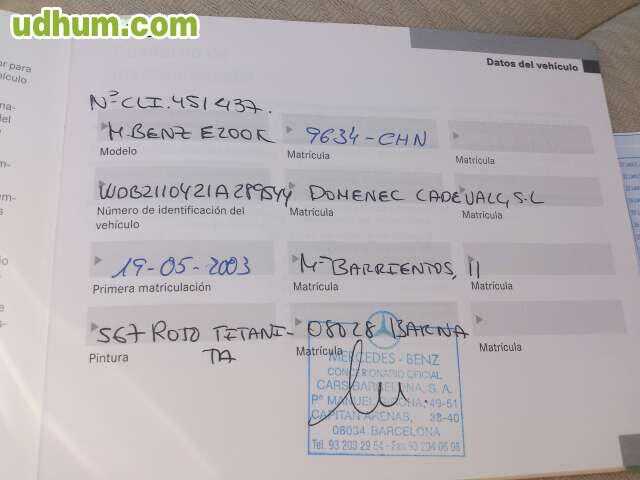 udhum.com
Datos del vehículo
Nº CLI. 451437.
M. BENZ E200K 9634-CHN
Modelo Matrícula Matrícula
WDB2110421A289544 DOMENEC CADEVALL, S.L
Número de identificación del vehículo Matrícula Matrícula
19-05-2003 Mª BARRIENTOS, 11
Primera matriculación Matrícula Matrícula
567 ROJO TITANI-TA 08028 BARNA
Pintura Matrícula Matrícula
MERCEDES-BENZ
CONCESIONARIO OFICIAL
CARS BARCELONA, S.A.
Pº MANUEL 49-51
CAPITAN ARENAS, 38-40
08034 BARCELONA
Tel. 93 203 29 54 - Fax 93 204 06 98